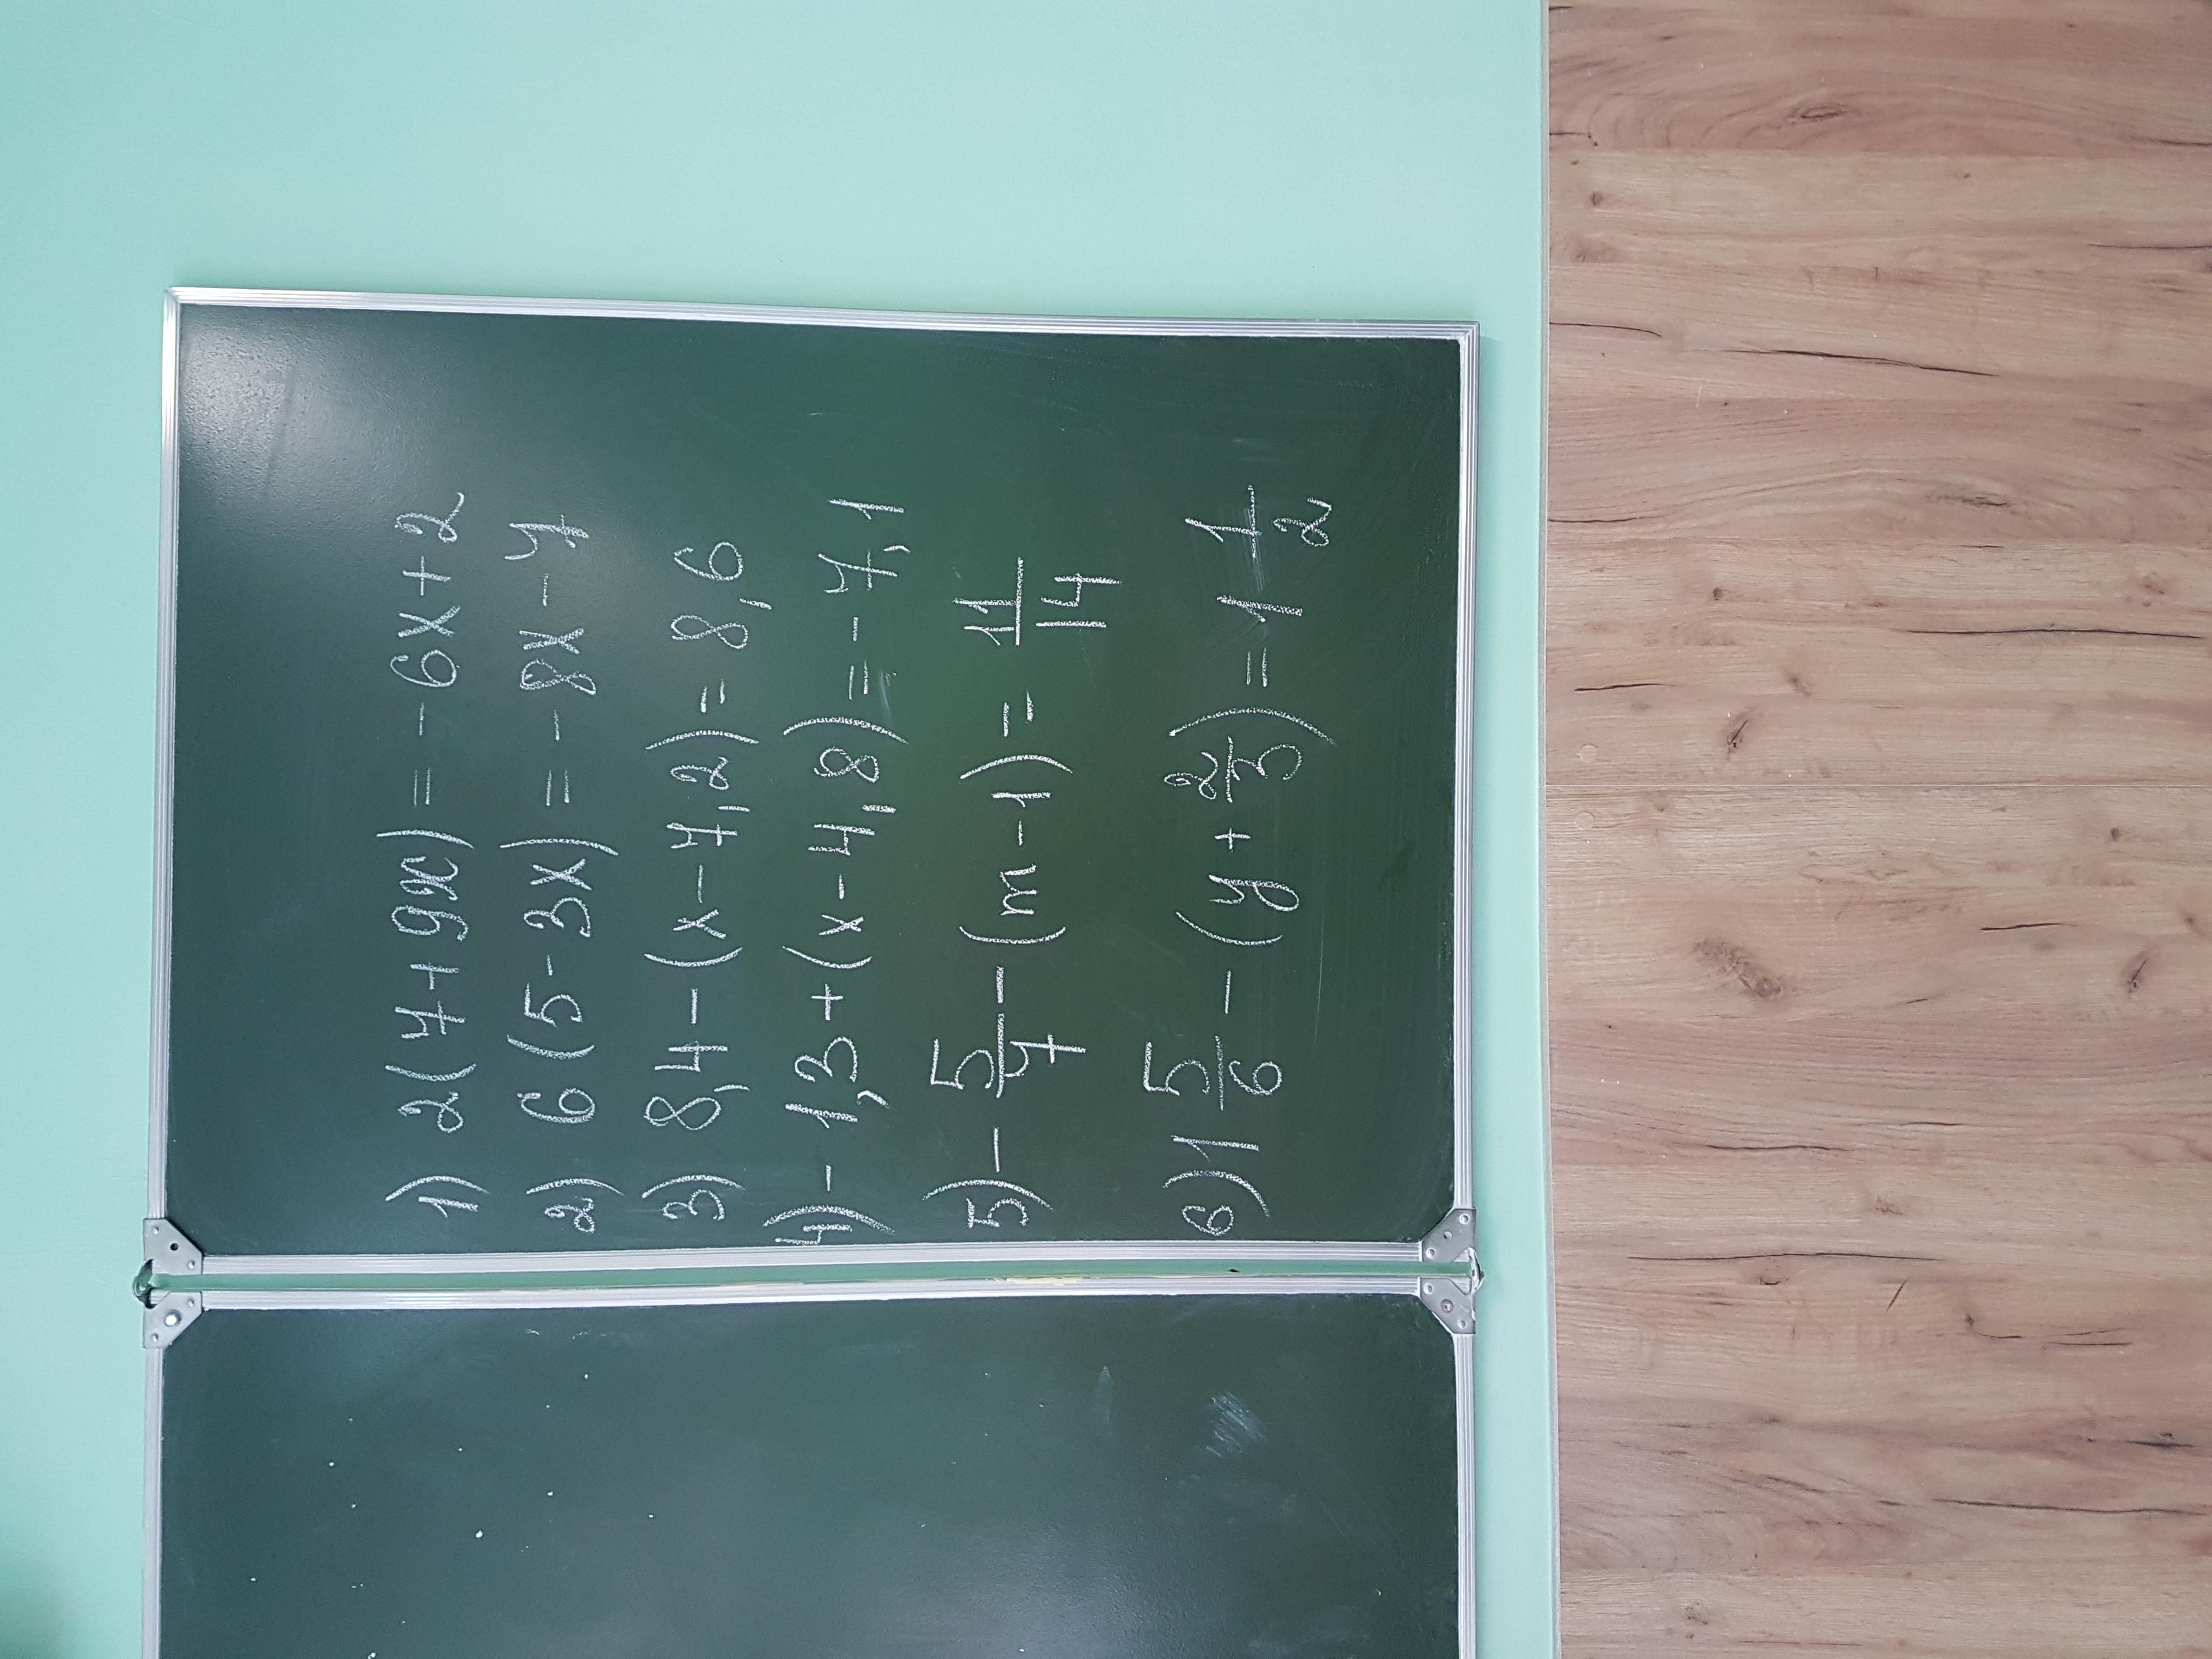 1) 2(7+9x) = - 6x + 2
2) 6(5-3x) = - 8x - 7
3) 8,4 - (x - 7,2) = 8,6
4) - 1,3 + (x - 4,8) = - 7,1
5) - 5/7 - (m - 1) = 11/14
6) 1 5/6 - (y + 2/3) = 1 1/2